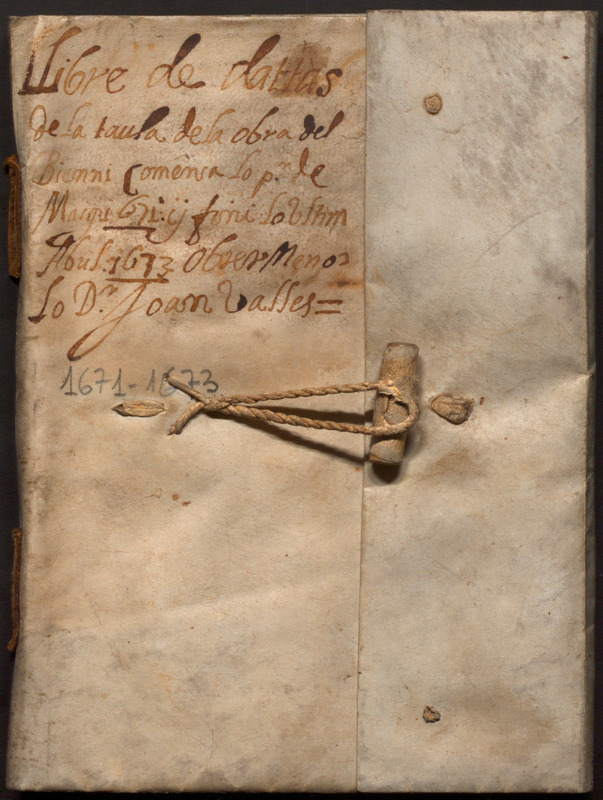 LLibre de dattas
de la taula de la obra del
Bienni Comensa lo p.r de
Maig 1671. ij fini lo Ultim
Abril. 1673 Obrer Menor
Lo D.r Joan Valles =
1671-1673